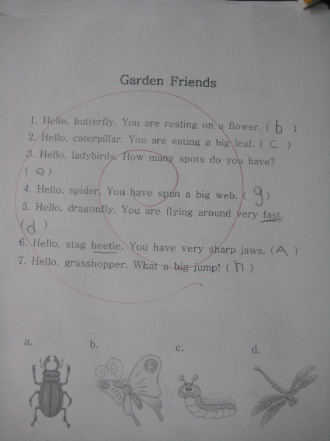 Garden Friends
1. Hello, butterfly. You are resting on a flower. ( b )
2. Hello, caterpillar. You are eating a big leaf. ( c )
3. Hello, ladybirds. How many spots do you have?
( e )
4. Hello, spider. You have spun a big web. ( g )
5. Hello, dragonfly. You are flying around very fast.
( d )
6. Hello, stag beetle. You have very sharp jaws. ( A )
7. Hello, grasshopper. What a big jump! ( h )
a. b. c. d.